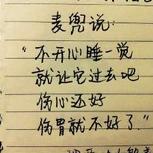 麦兜说：
“不开心睡一觉
就让它过去吧
伤心还好
伤胃就不好了”